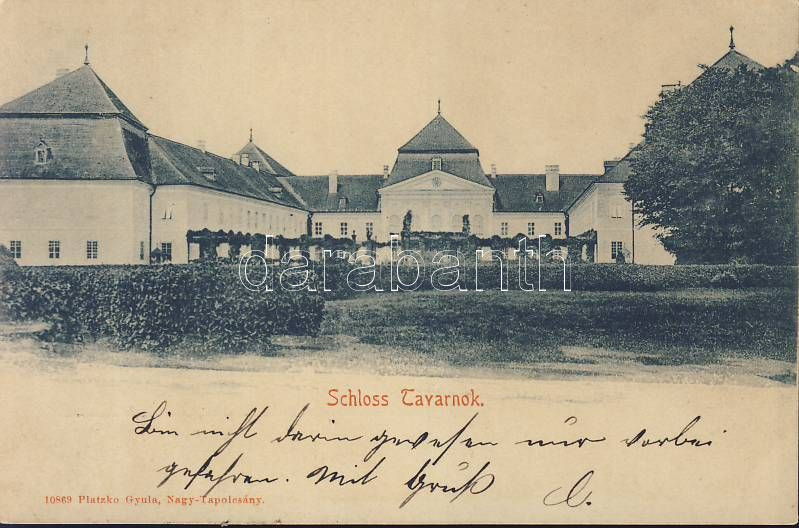 darabanth
Schloss Tavarnok.
Bin nicht darin gewesen nur vorbei
gefahren. Mit Gruß C.
10869 Platzko Gyula, Nagy-Tapolcsány.